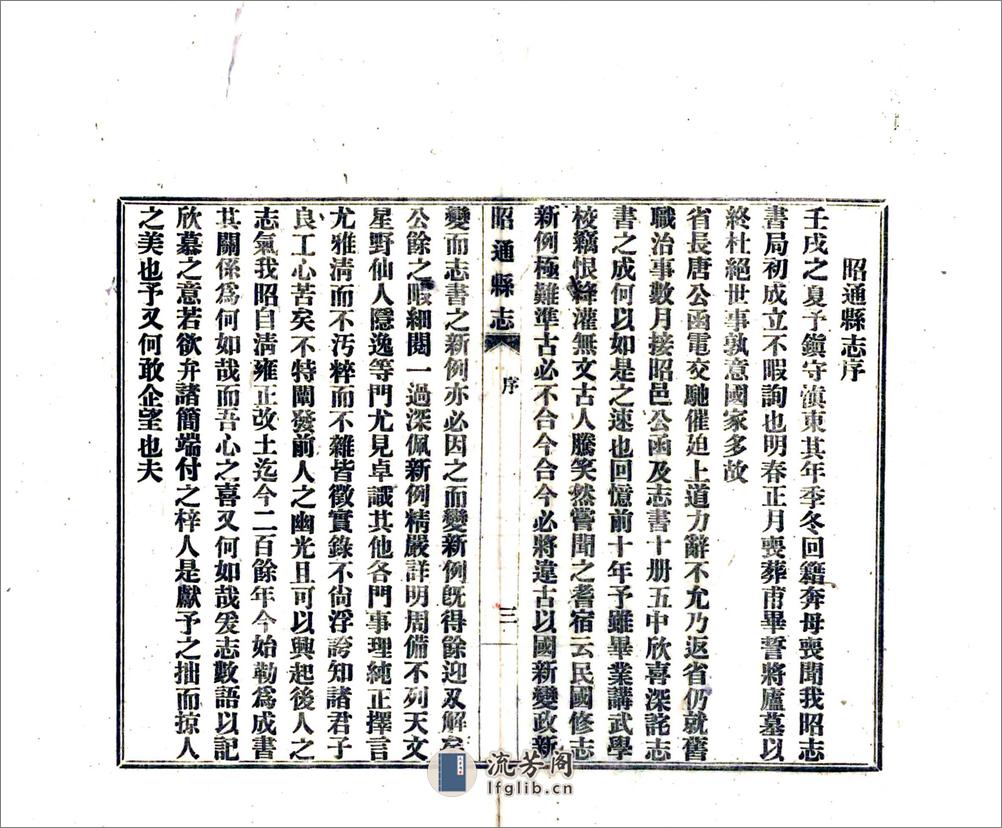 昭通縣志序
壬戌之夏予鎮守滇東其年季冬回籍奔母喪聞我昭志
書局初成立不暇詢也明春正月喪葬甫畢誓將廬墓以
終杜絕世事孰意國家多故
省長唐公函電交馳催廹上道力辭不允乃返省仍就舊
職治事數月接昭邑公函及志書十册五中欣喜深詫志
書之成何以如是之速也回憶前十年予雖畢業講武學
校竊恨絳灌無文古人騰笑然嘗聞之耆宿云民國修志
新例極難準古必不合今合今必將違古以國新變政新
昭通縣志
序
三
變而志書之新例亦必因之而變新例旣得餘迎刃解矣
公餘之暇細閱一過深佩新例精嚴詳明周備不列天文
星野仙人隱逸等門尤見卓識其他各門事理純正擇言
尤雅清而不汚粹而不雜皆徵實錄不尙浮誇知諸君子
良工心苦矣不特闡發前人之幽光且可以興起後人之
志氣我昭自清雍正改土迄今二百餘年今始勒爲成書
其關係爲何如哉而吾心之喜又何如哉爰志數語以記
欣慕之意若欲弁諸簡端付之梓人是獻予之拙而掠人
之美也予又何敢企望也夫
流芳阁
lfglib.cn